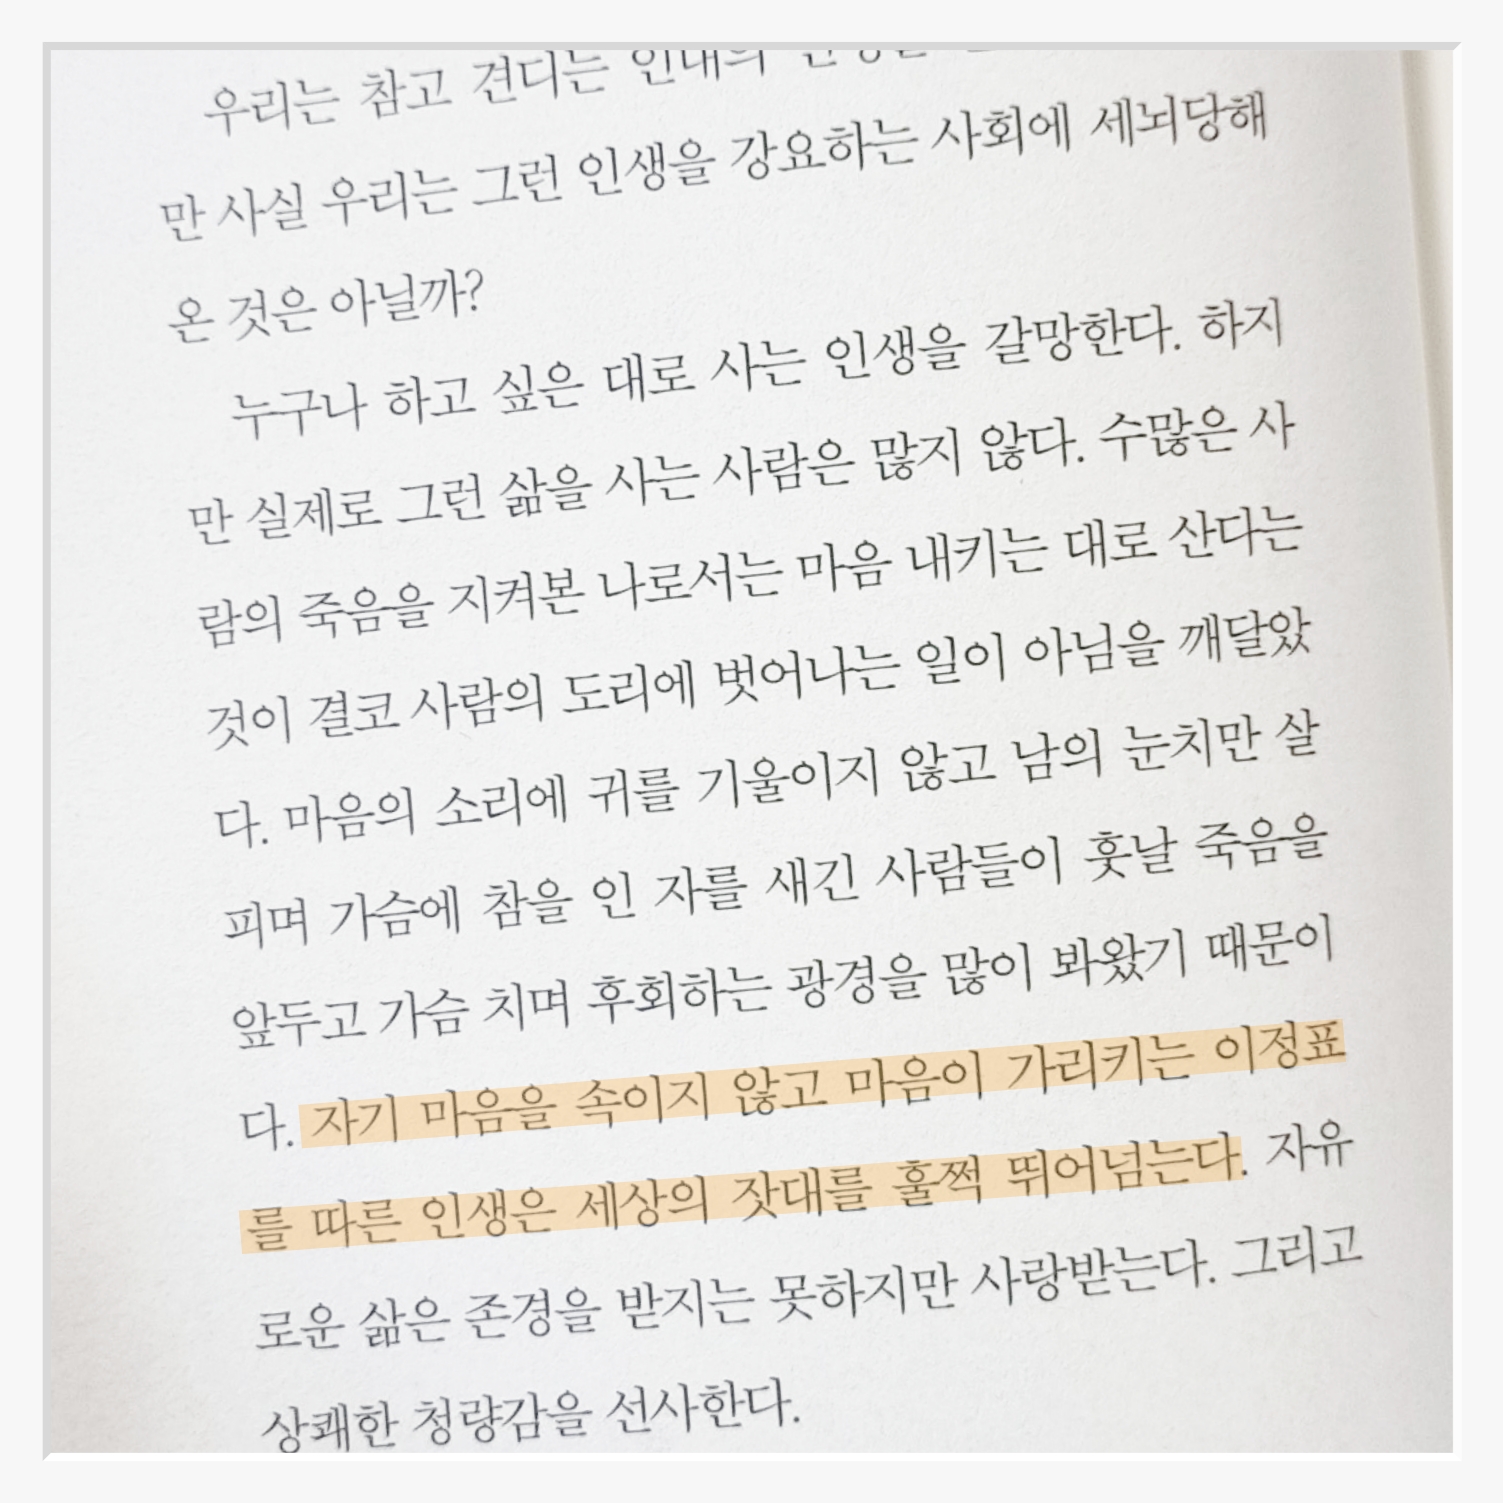 우리는 참고 견디는 인내의
만 사실 우리는 그런 인생을 강요하는 사회에 세뇌당해
온 것은 아닐까?
누구나 하고 싶은 대로 사는 인생을 갈망한다. 하지
만 실제로 그런 삶을 사는 사람은 많지 않다. 수많은 사
람의 죽음을 지켜본 나로서는 마음 내키는 대로 산다는
것이 결코 사람의 도리에 벗어나는 일이 아님을 깨달았
다. 마음의 소리에 귀를 기울이지 않고 남의 눈치만 살
피며 가슴에 참을 인 자를 새긴 사람들이 훗날 죽음을
앞두고 가슴 치며 후회하는 광경을 많이 봐왔기 때문이
다. 자기 마음을 속이지 않고 마음이 가리키는 이정표
를 따른 인생은 세상의 잣대를 훌쩍 뛰어넘는다. 자유
로운 삶은 존경을 받지는 못하지만 사랑받는다. 그리고
상쾌한 청량감을 선사한다.